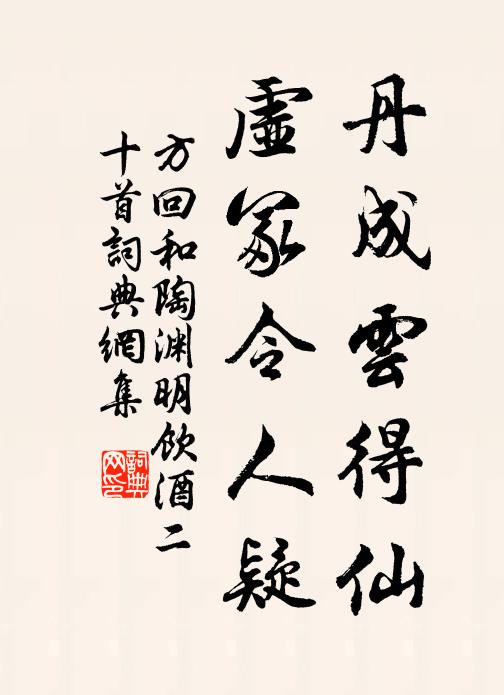 丹成雲得仙
虛冢令人疑
方回和陶渊明飲酒二
十首詞典網集
詞典
网印